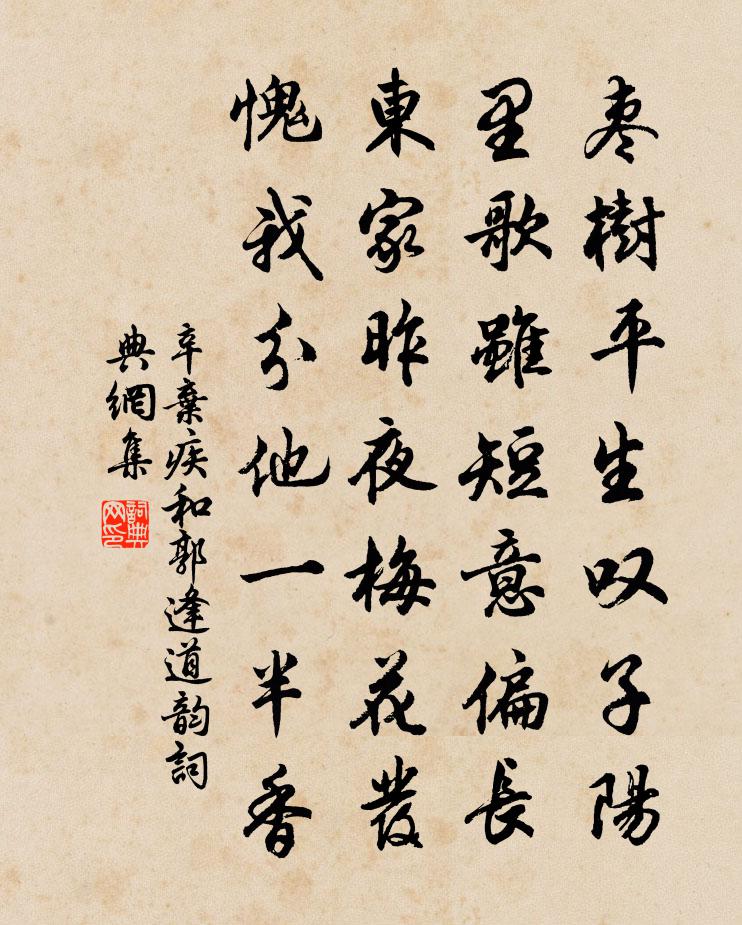 枣樹平生叹子陽
里歌雖短意偏長
東家昨夜梅花發
愧我分他一半香
辛棄疾和郭逢道韵詞
典網集
詞典网印